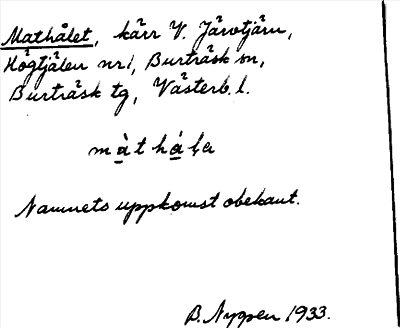 Mathålet, kärr V. Järvtjärn,
Högtjälen nr 1, Burträsk sn,
Burträsk tg, Västerb. l.
màtháḷa
Namnets uppkomst obekant.
B. Nygren 1933.